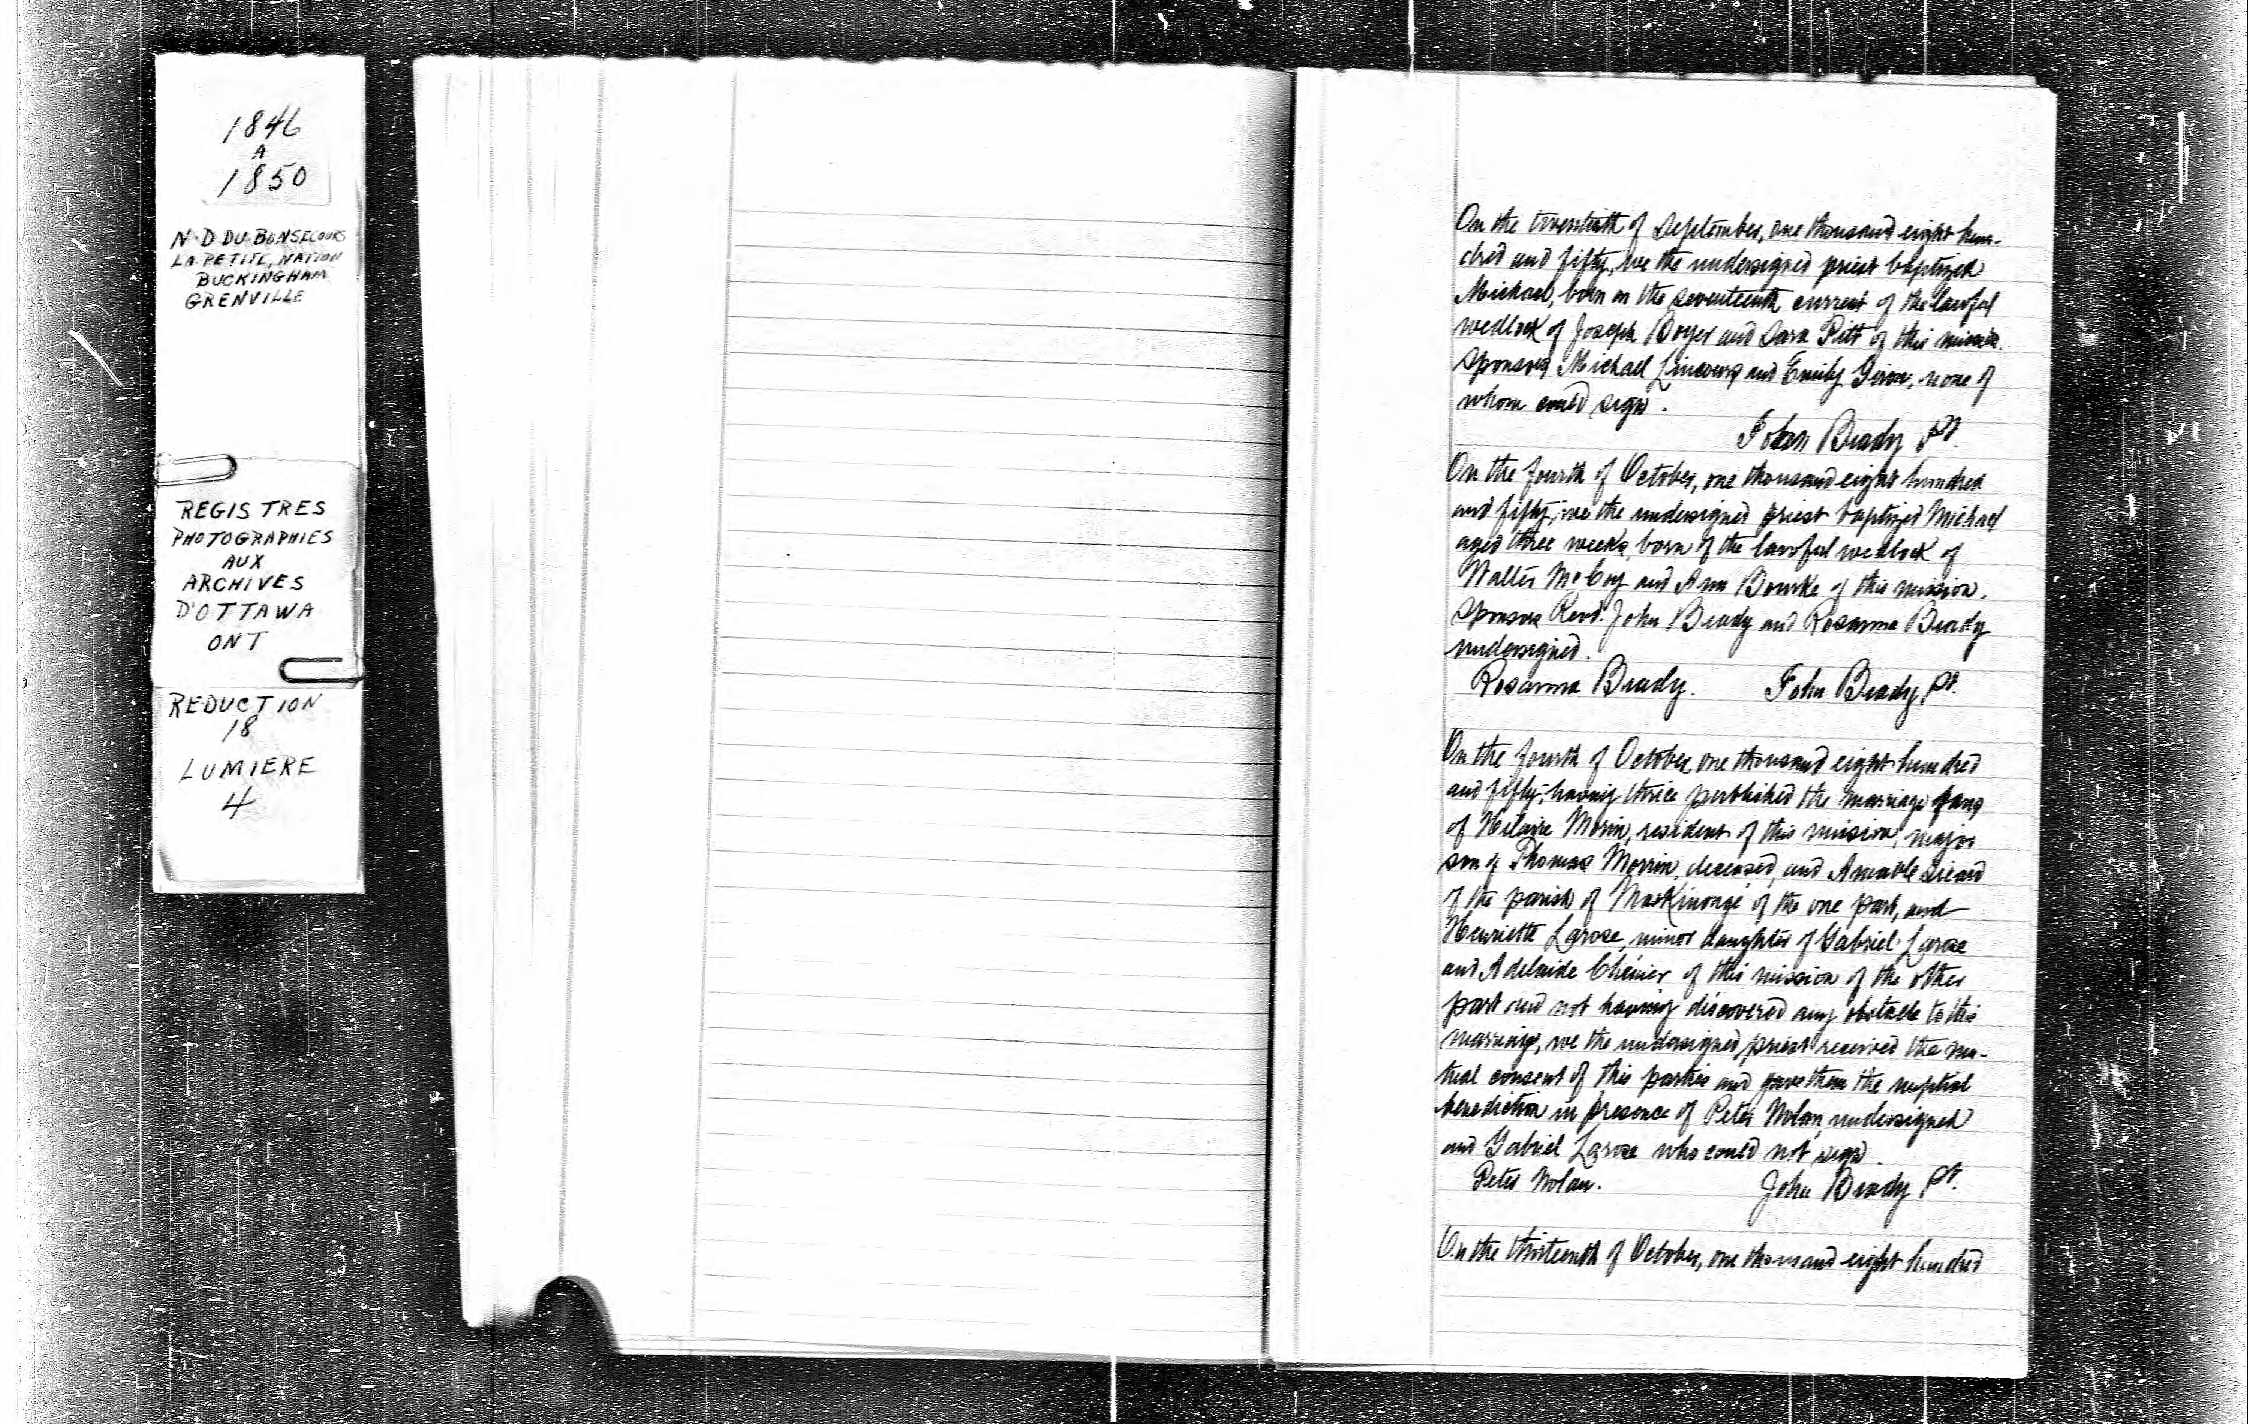 1846
A
1850
N.D DU BONSECOURS
LA PETITE, NATION
BUCKINGHAM
GRENVILLE
REGISTRES
PHOTOGRAPHIES
AUX
ARCHIVES
D'OTTAWA
ONT
REDUCTION
18
LUMIERE
4
On the twentieth of September, one thousand eight hun-
dred and fifty, we the undersigned priest baptized
Michael, born on the seventeenth current of the lawful
wedlock of Joseph Boyer and Sara Pitt of this mission.
Sponsors Michael and Emily, none of
whom could sign.
John Brady Pt.
On the fourth of October, one thousand eight hundred
and fifty, we the undersigned priest baptized Michael
aged three weeks, born of the lawful wedlock of
Walter McCoy and Ann Bourke of this mission.
Sponsors Revd. John Brady and Rosanna Brady
undersigned.
Rosanna Brady. John Brady Pt.
On the fourth of October, one thousand eight hundred
and fifty, having thrice published the marriage bans
of Hilaire Morin, resident of this mission, major
son of Thomas Morrin, deceased, and Amable Sicard
of the parish of Maskinongé of the one part, and
Henriette Larose, minor daughter of Gabriel Larose
and Adelaide Chénier of this mission of the other
part and not having discovered any obstacle to this
marriage, we the undersigned priest received the mu-
tual consent of this parties and gave them the nuptial
benediction in presence of Peter Nolan undersigned
and Gabriel Larose who could not sign.
Peter Nolan. John Brady Pt.
On the thirteenth of October, one thousand eight hundred